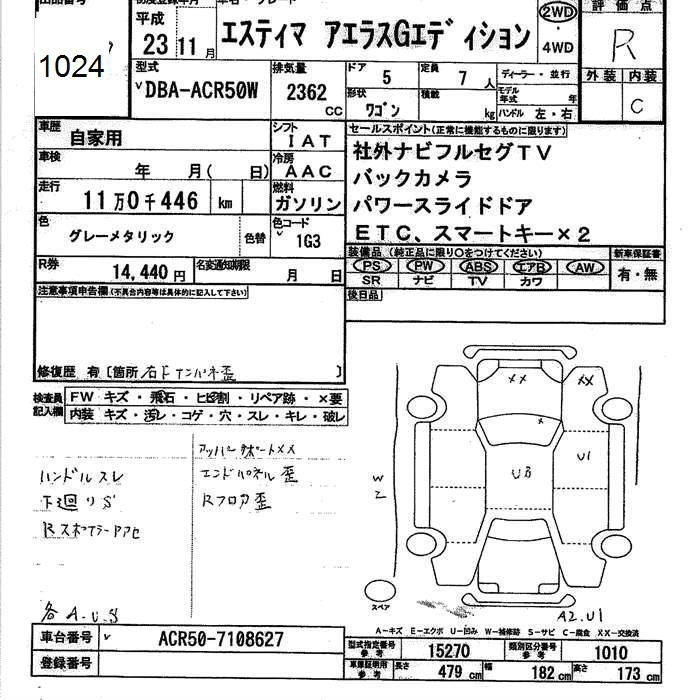 1024
平成
23 11月
エスティマ アエラスGエディション
2WD
・
4WD
評価点
R
型式
DBA-ACR50W
排気量
2362
cc
ドア 5
定員 7人
ディーラー・並行
外装 内装
C
形状
ワゴン
積載
kg
モデル年式 年
ハンドル 左・右
車歴
自家用
シフト
IAT
セールスポイント(正常に機能するものに限ります)
車検
年 月( 日)
冷房
AAC
社外ナビフルセグTV
バックカメラ
パワースライドドア
ETC、スマートキー×2
走行
11万0千446 km
燃料
ガソリン
色
グレーメタリック
色替
色コード
1G3
装備品(純正品に限り○をつけてください)
新車保証書
PS PW ABS エアB AW
SR ナビ TV カワ
有・無
R券
14,440円
名変通知期限
月 日
後日品
注意事項申告欄(不具合内容等は具体的に記入して下さい)
修復歴 有 [箇所 右Fインパネ歪 ]
検査員
記入欄
FW キズ・飛石・ヒビ割・リペア跡・×要
内装 キズ・汚レ・コゲ・穴・スレ・キレ・破レ
アッパーサポートXX
ハンドルスレ
エンドパネル歪
下廻りS
Rフロア歪
各A.U.S
XX
XX
X
U1
U3
W2
スペア
A2.U1
A-キズ E-エクボ U-凹み W-補修跡 S-サビ C-腐食 XX-交換済
車台番号
ACR50-7108627
登録番号
型式指定番号
参考
15270
類別区分番号
参考
1010
車庫証明用
参考
長さ 479 cm
幅 182 cm
高さ 173 cm